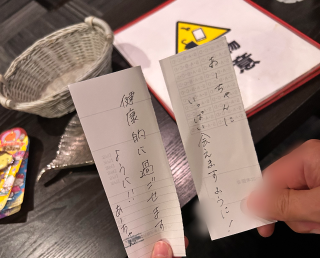 あーちゃんに
いっぱい会えますように!
健康的に過ごせます
ように!!
あーちゃん